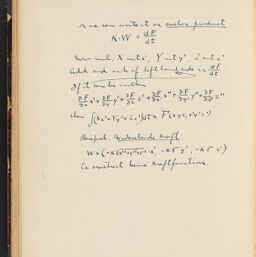 or we can write it as scalar product
K·W = dF/dt
Now mult. X into x', Y into y', Z into z'
Add and ask if left hand side is dF/dt
If it can be written
∂F/∂x x' + ∂F/∂y y' + ∂F/∂z z' + ∂F/∂x' x'' + ∂F/∂y' y'' + ∂F/∂z' z''
then ∫(Xx'+Yy'+Zz')dt = F(x y z, x' y' z')
Beispiel. Widerstands Kraft
W = (-κ√x'²+y'²+z'² · x', -κ√ y', -κ√ z')
Es existiert keine Kraftfunction.